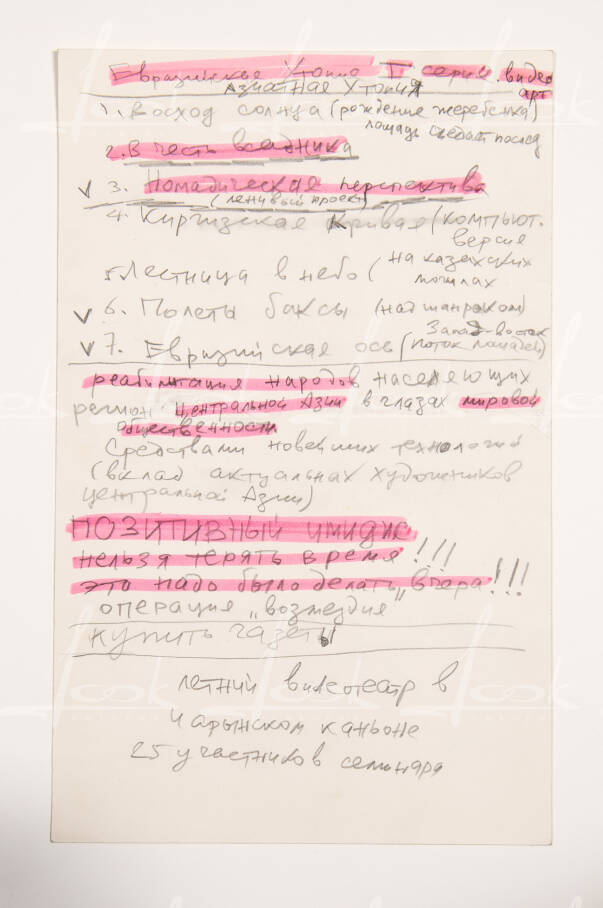 Евразийская Утопия I серия. видео
Азиатная Утопия арт
1. Восход солнца (рождение жеребенка)
лошадь съедает послед
2. В честь всадника
✓ 3. Номадическая перспектива
(ленивый проект)
4. Киргизская Кривая (компьют.
версия
5. Лестница в небо (на казахских
могилах
✓ 6. Полеты баксы (над шанраком)
Запад-восток
✓ 7. Евразийская ось (поток лошадей)
реабилитация народов населяющих
регион Центральной Азии в глазах мировой
общественности
средствами новейших технологий
(вклад актуальных художников
центральной Азии)
ПОЗИТИВНЫЙ имидж
нельзя терять время!!!
это надо было делать „вчера!!!
операция „возмездия
купить газеты
летний видеотеатр в
Чарынском каньоне
25 участников семинара
look